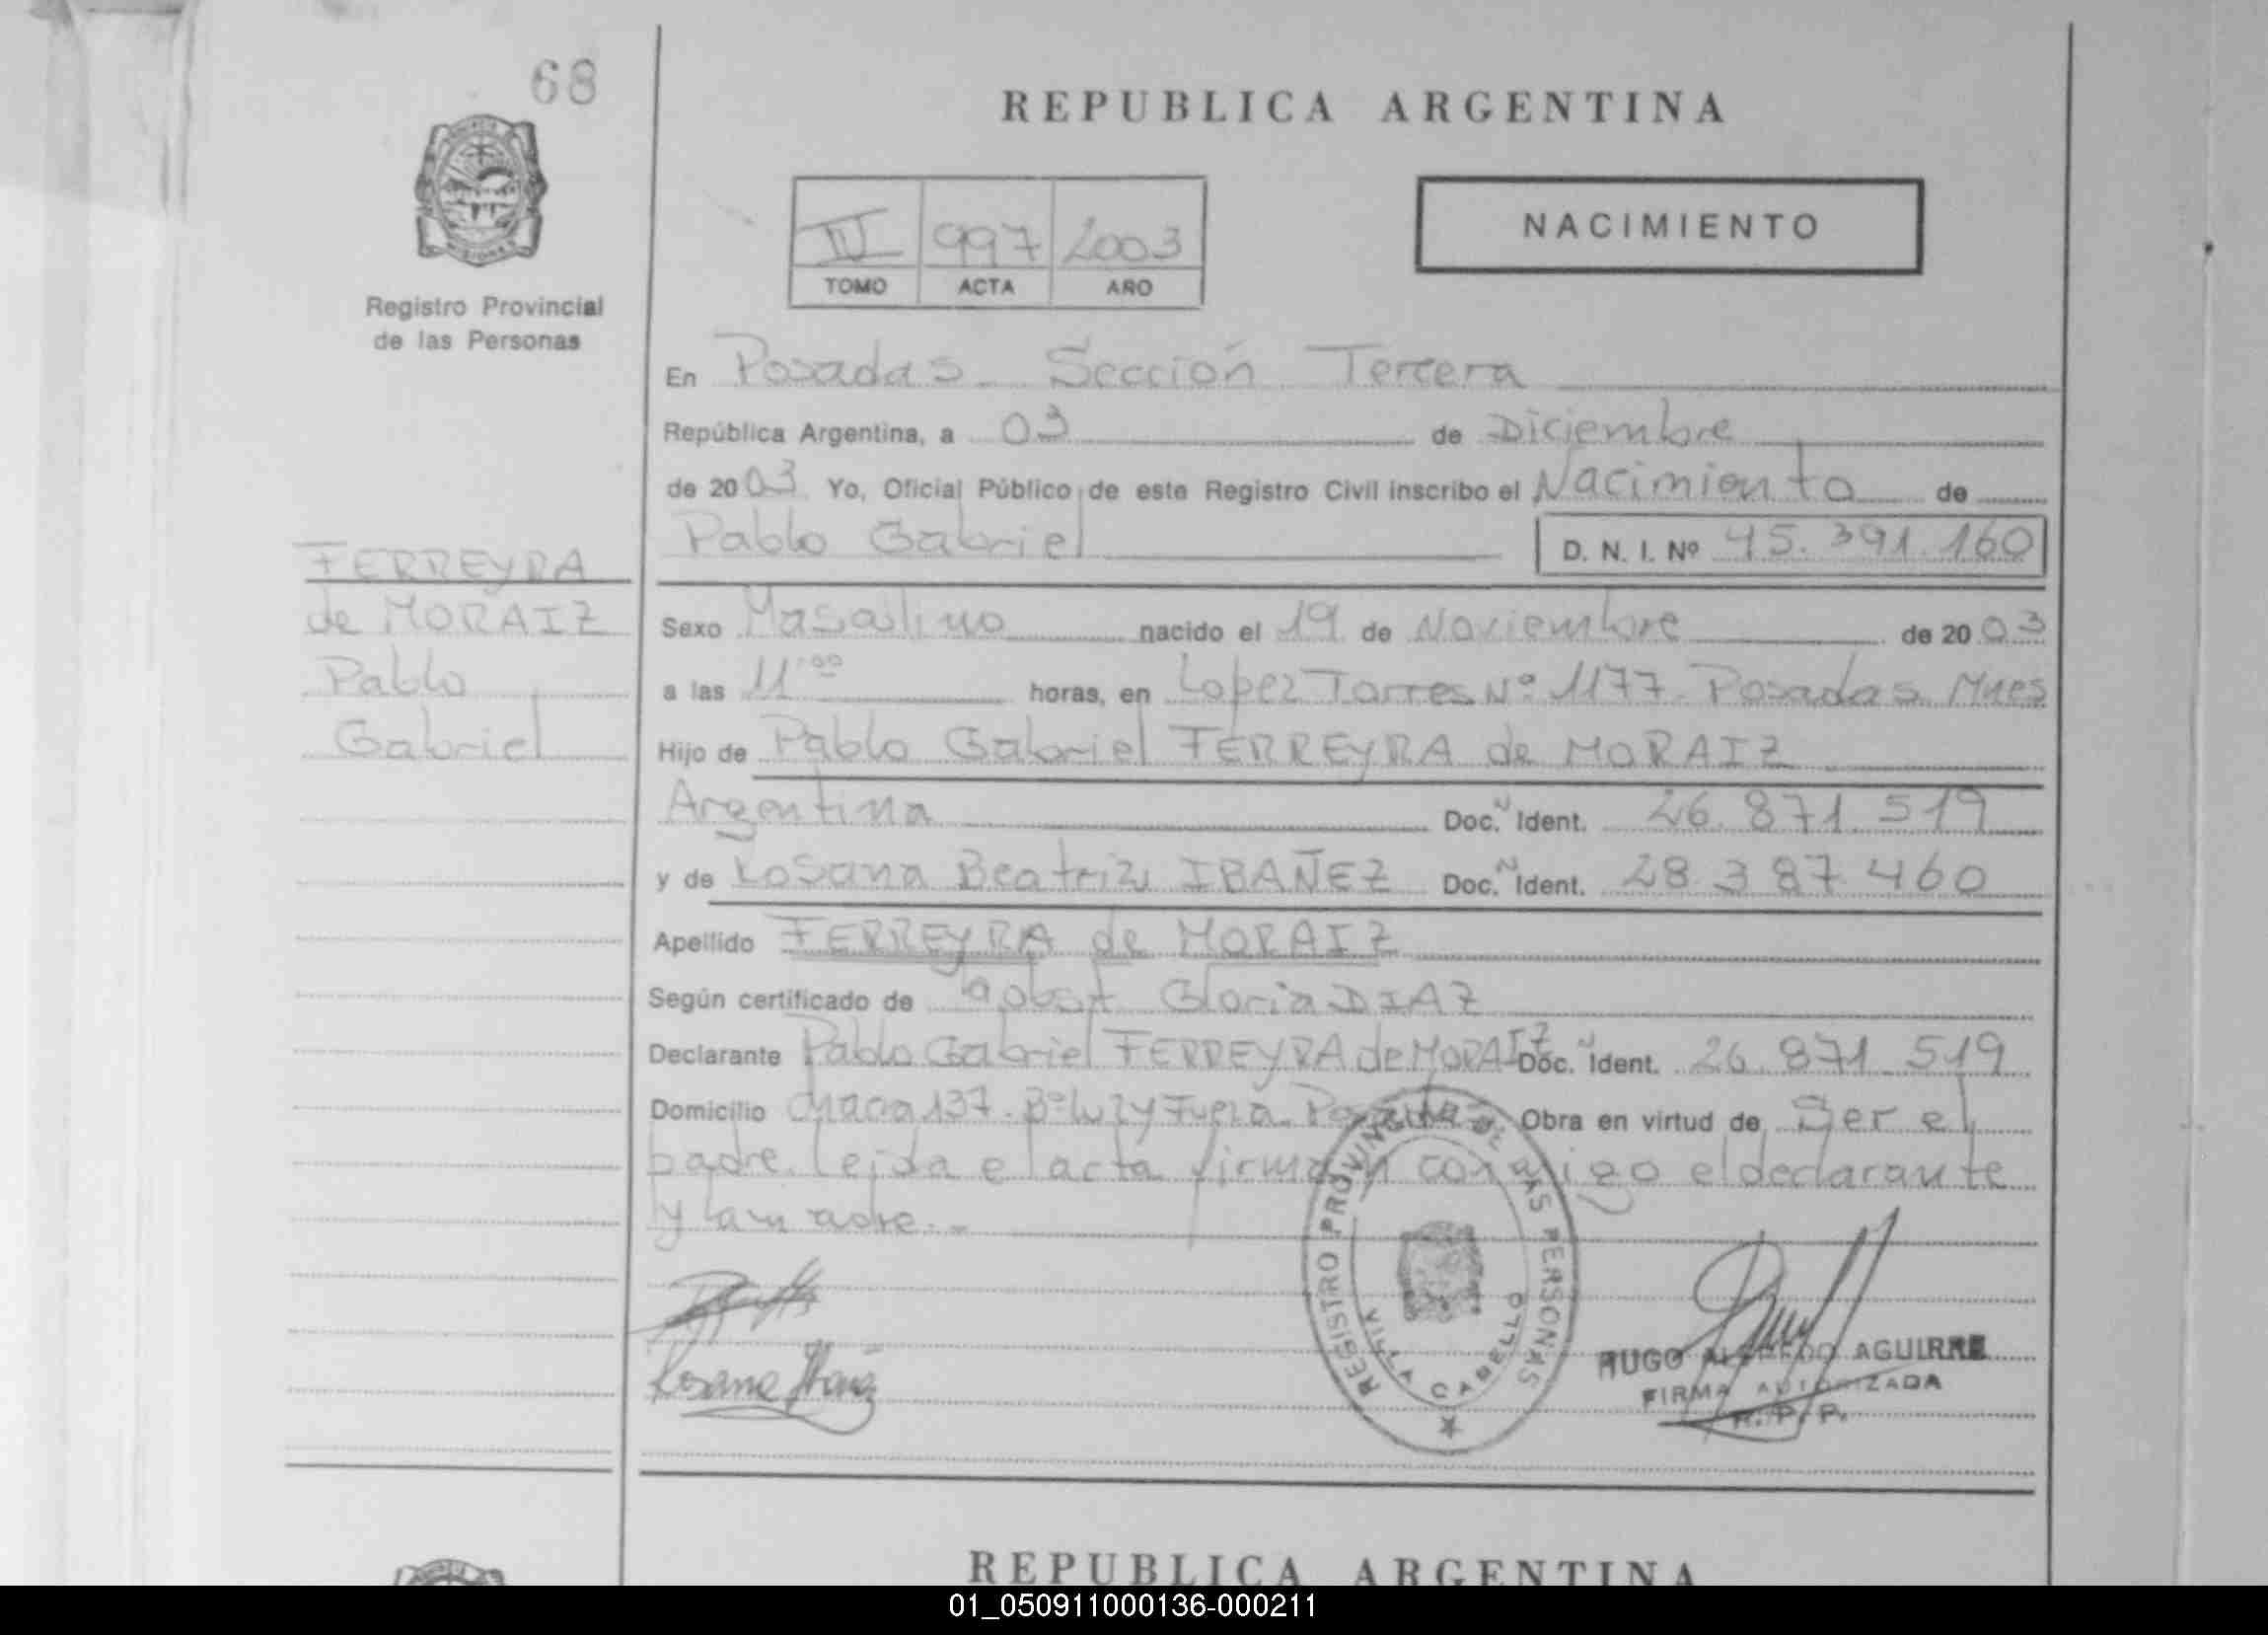 68
REPUBLICA ARGENTINA
NACIMIENTO
IV 997 2003
TOMO ACTA AÑO
Registro Provincial
de las Personas
En Posadas Sección Tercera
República Argentina, a 03 de Diciembre
de 2003 Yo, Oficial Público de este Registro Civil inscribo el Nacimiento de
Pablo Gabriel D. N. I. Nº 45.391.160
FERREYRA
de MORAIZ
Pablo
Gabriel
Sexo Masculino nacido el 19 de Noviembre de 2003
a las 11 00 horas, en Lopez Torres Nº 1177 Posadas Mnes
Hijo de Pablo Gabriel FERREYRA de MORAIZ
Argentina Doc. Ident. 26.871.519
y de Rosana Beatriz IBAÑEZ Doc. Ident. 28.387.460
Apellido FERREYRA de MORAIZ
Según certificado de obst Gloria DIAZ
Declarante Pablo Gabriel FERREYRA de MORAIZ Doc. Ident. 26.871.519
Domicilio Chacra 137. Bº Luz y Fuerza Posadas Obra en virtud de Ser el
padre. Leida el acta firman conmigo el declarante
y la madre.-
Rosana Ibañez
REGISTRO PROVINCIAL DE LAS PERSONAS
VILLA CABELLO
HUGO ALFREDO AGUIRRE
FIRMA AUTORIZADA
R. P. P.
REPUBLICA ARGENTINA
01_050911000136-000211